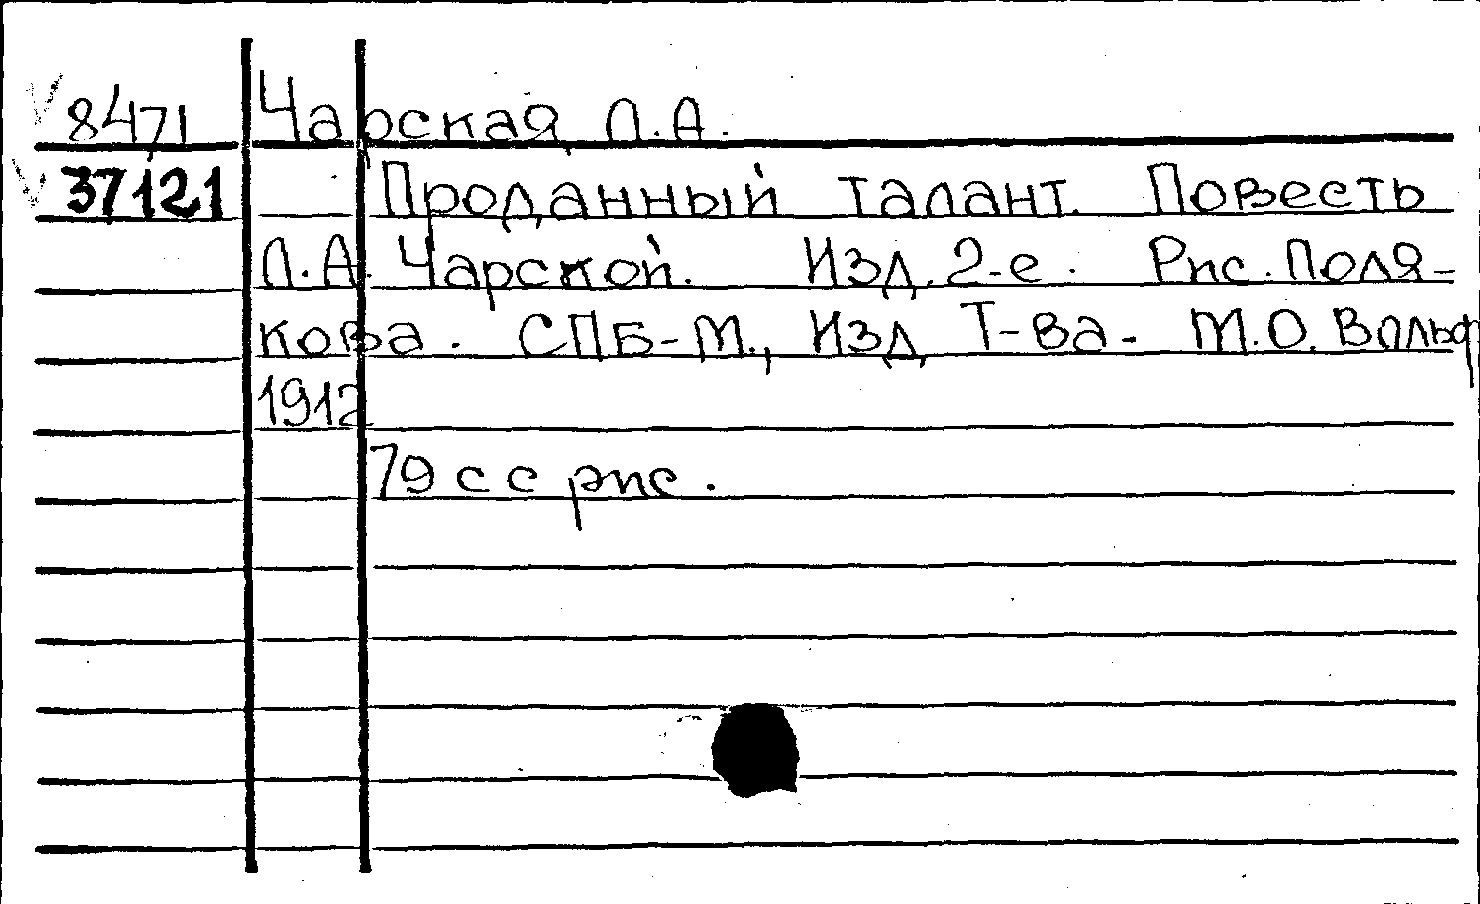 8471 Чарская, Л.А.
37121 Проданный талант. Повесть
Л.А. Чарской. Изд. 2-е. Рис. Поля-
кова. СПБ-М., Изд. Т-ва. М.О. Вольф
1912
79 с с рис.